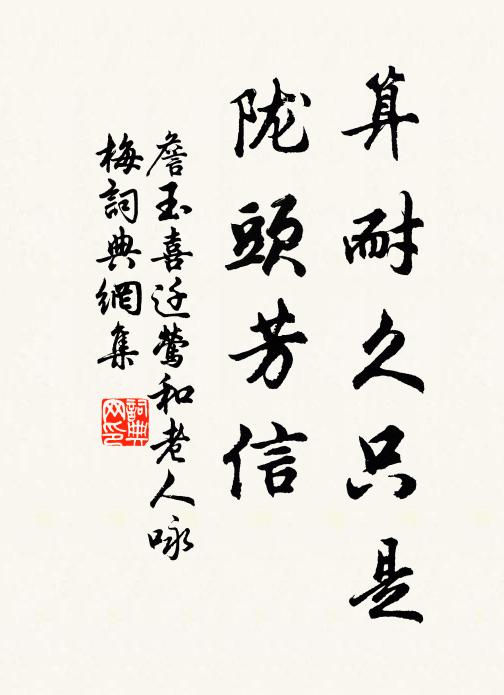 算耐久只是
陇頭芳信
詹玉喜迁鶯和老人咏
梅詞典網集
詞典
网印